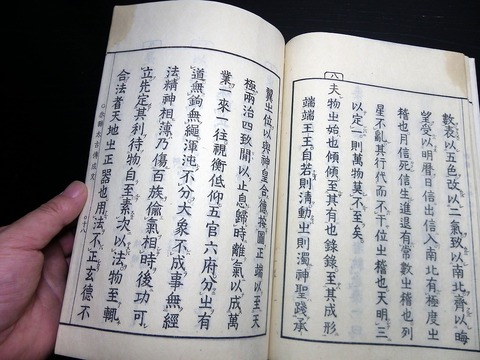 數表以五色改以二氣致以南北齊以晦
望受以明曆日信出信入南北有極度之
稽也月信死信生進退有常數之稽也列
星不亂其行代而不干位之稽也天明三
以定一則萬物莫不至矣
八
夫物之始也傾傾至其有也錄錄至其成形
端端王王自若則清動之則濁神聖踐承
翼之位以與神皇合德按圖正端以至无
極兩治四致閒以止息歸時離氣以成萬
業一來一往視衡低仰五官六府分之有
道無鉤無繩渾沌不分大象不成事無經
法精神相薄乃傷百族偷氣相時後功可
立先定其利待物自至素次以法物至輒
合法者天地之正器也用法不正玄德不